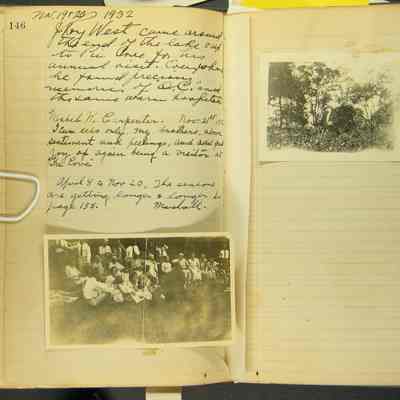 146
Nov. 19 1932
J. Roy West came around
the end of the lake and
to The Cove for his
annual visit. Everywhere
he found precious
memories of and
the same warm hospital
Mabel W. Carpenter. Nov. 20th
I can use only my brother's
sentiment and feelings, and add
joy of again being a visitor at
The Cove
April 4 to Nov 20, The seasons
are getting longer & longer
page 155. Marshall.